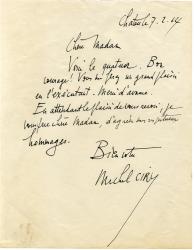 Chatou le 7.2.64
Chère Madame
Voici le quatuor. Bon
courage! Vous me ferez un grand plaisir
en l'exécutant. Merci d'avance.
En attendant le plaisir de vous revoir, je
vous prie chère Madame, d'agréer mes respectueux
hommages.
Bien vôtre
Michel Ciry